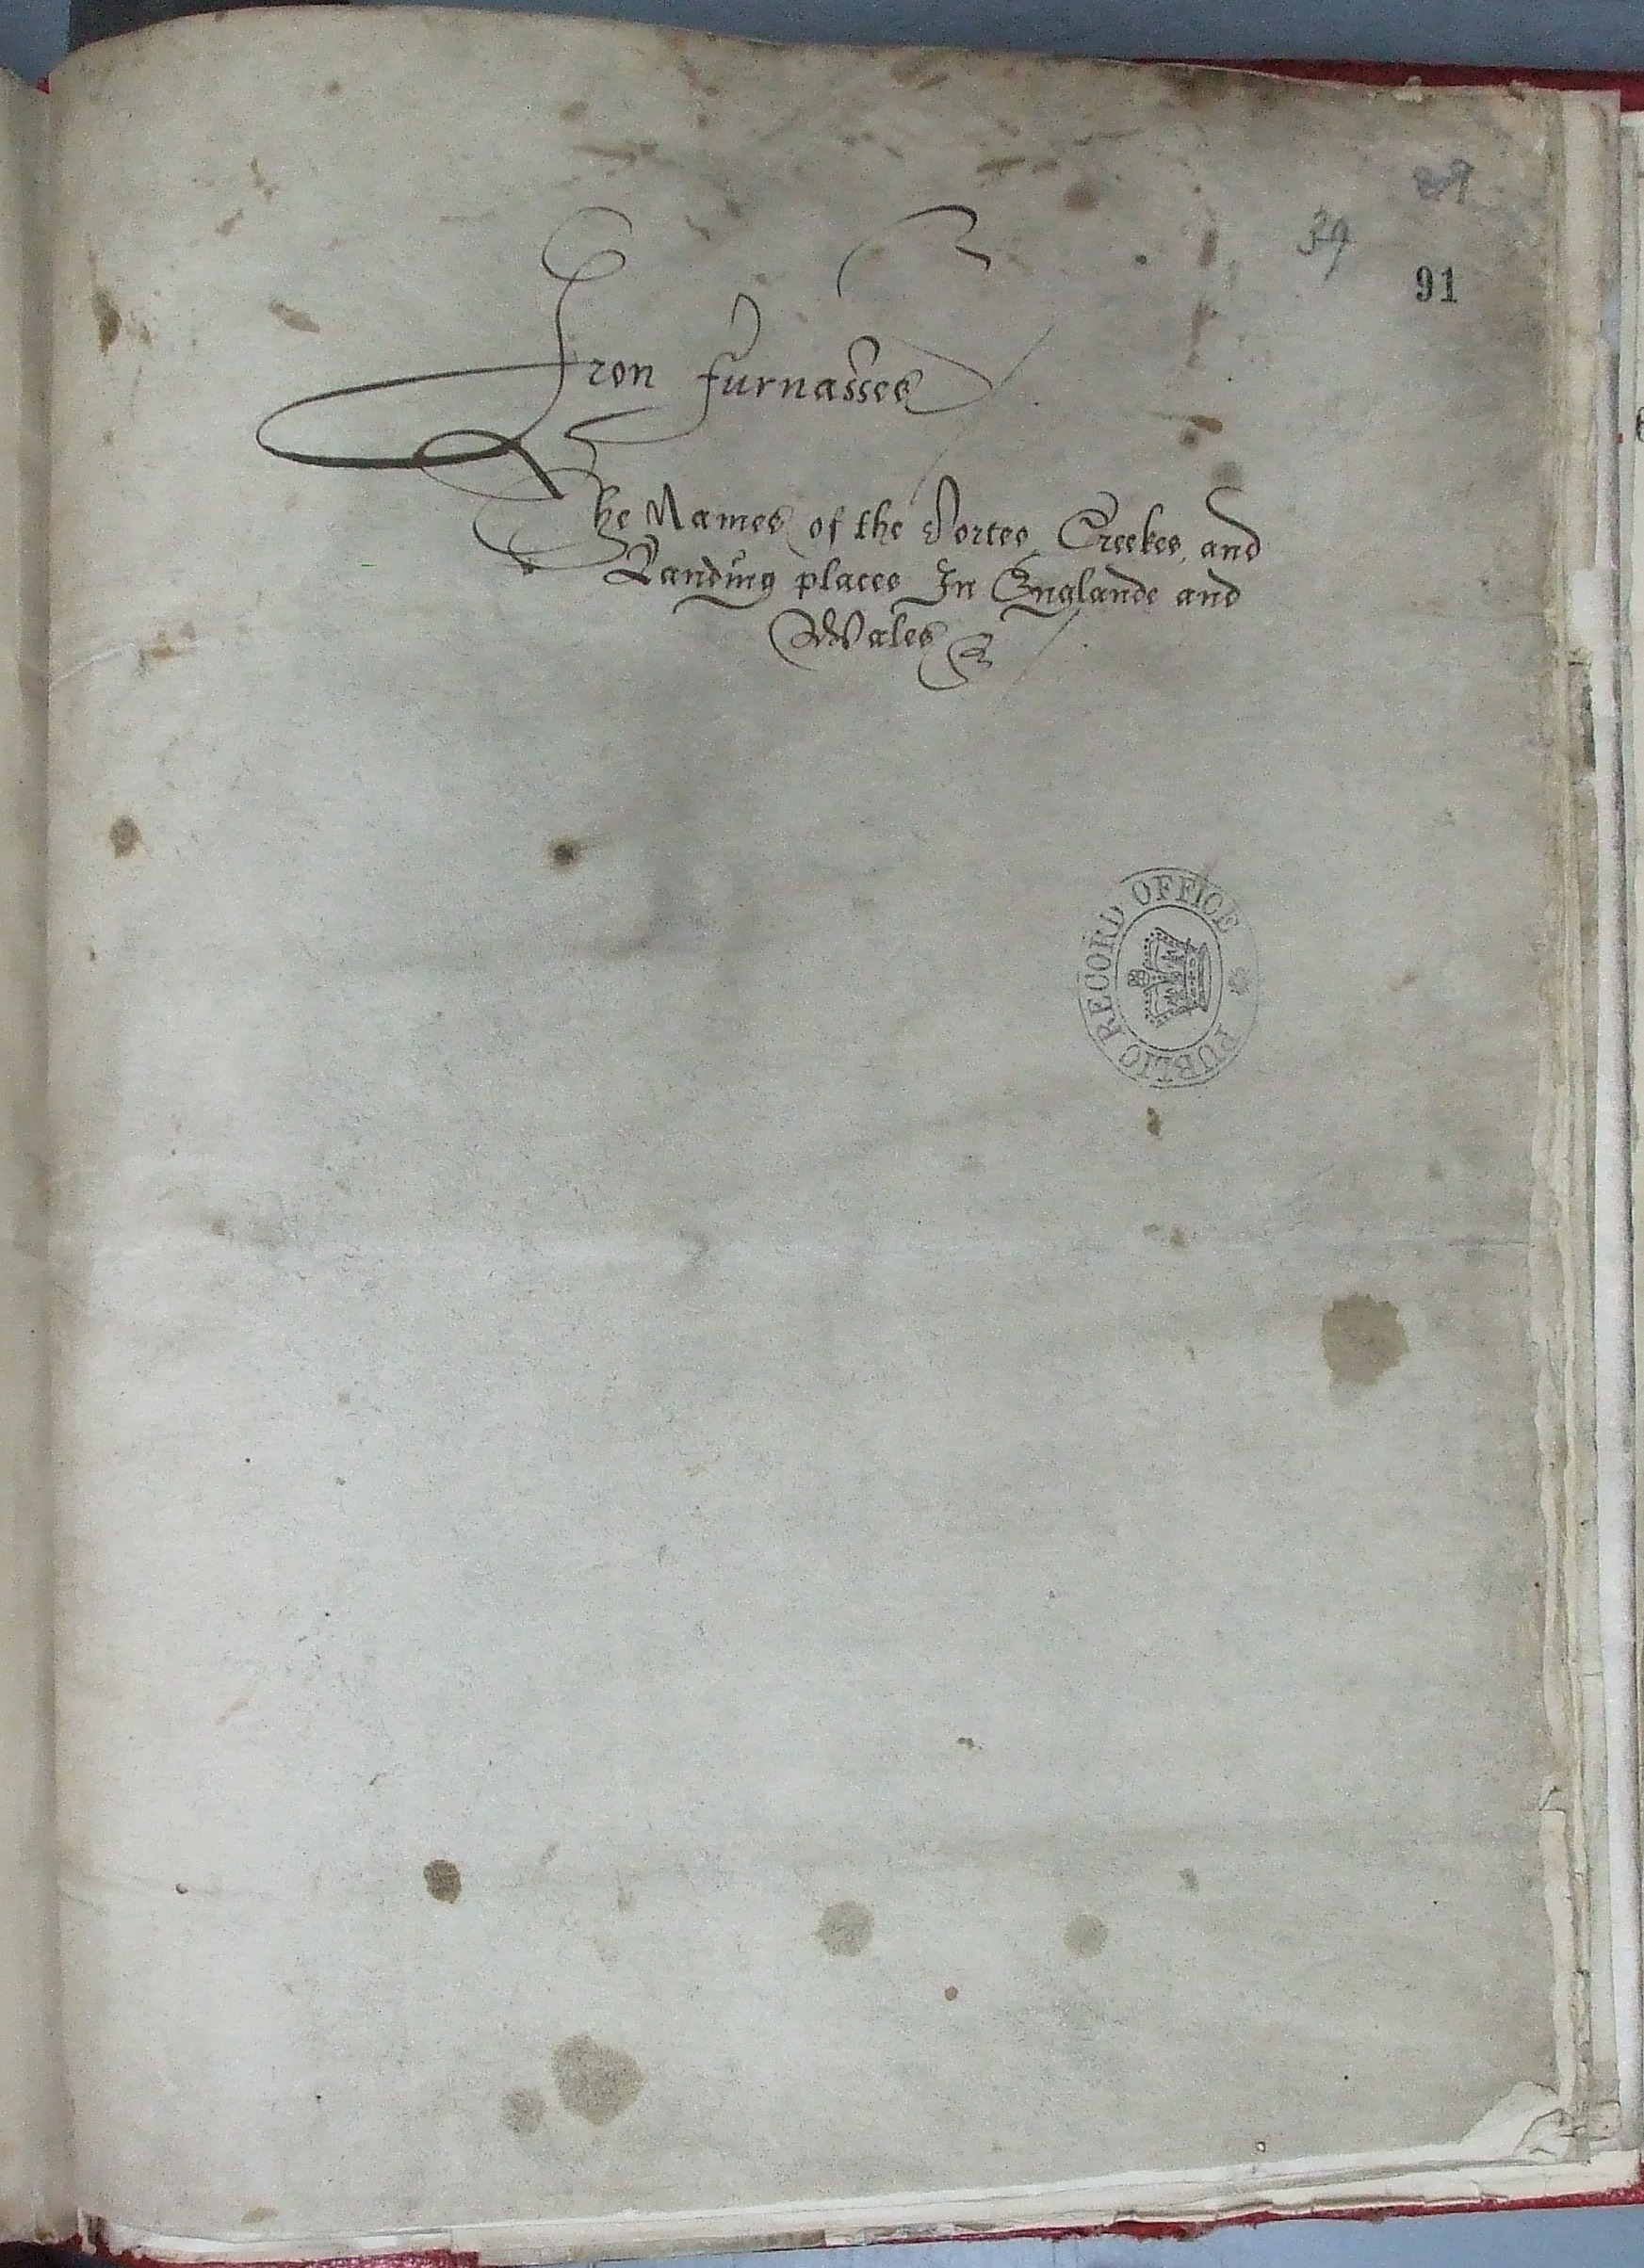 39
91
Iron furnasses
The Names of the Portes Creekes, and
Landing places In Englande and
Wales
PUBLIC RECORD OFFICE